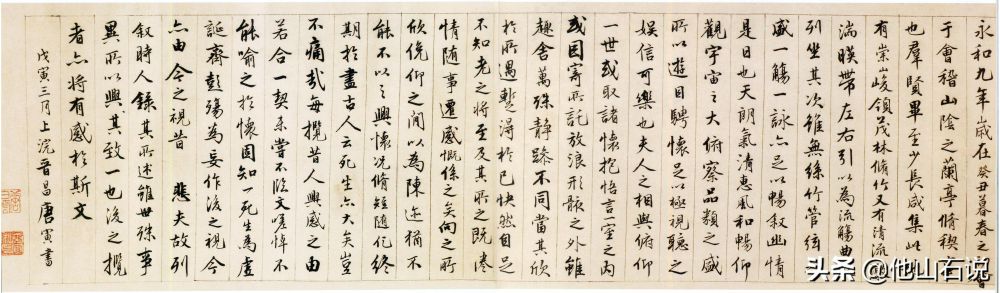 永和九年歲在癸丑暮春之會
于會稽山陰之蘭亭脩禊
也群賢畢至少長咸集此
有崇峻領茂林脩竹又有清流
湍暎帶左右引以為流觴曲
列坐其次雖無絲竹管絃
盛一觴一詠亦足以暢敘幽情
是日也天朗氣清惠風和暢仰
觀宇宙之大俯察品類之盛
所以遊目騁懷足以極視聽之
娛信可樂也夫人之相與俯仰
一世或取諸懷抱悟言一室之內
或因寄所託放浪形骸之外雖
趣舍萬殊靜躁不同當其欣
於所遇暫得於己快然自足
不知老之將至及其所之既倦
情隨事遷感慨係之矣向之所
欣俛仰之間以為陳迹猶不
能不以之興懷況脩短隨化終
期於盡古人云死生亦大矣豈
不痛哉每攬昔人興感之由
若合一契未嘗不臨文嗟悼不
能喻之於懷固知一死生為虛
誕齊彭殤為妄作後之視今
亦由今之視昔 悲夫故列
敘時人錄其所述雖世殊事
異所以興其致一也後之攬
者亦將有感於斯文
戊寅三月上浣晉昌唐寅書
头条@他山石说